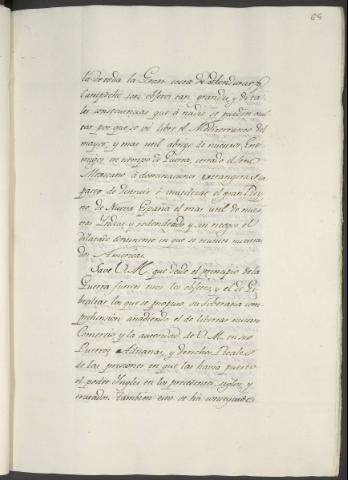 68
la de toda la Gran costa de Honduras y
Campeche son objetos tan grandes, y de ta-
les consecuencias que à nadie se pueden ocul-
tar porque se ve libre el Mediterraneo del
mayor, y mas util abrigo de nuestros Ene-
migos en tiempo de Guerra, cerrado el Seno
Mexicano à dominaciones extrangeras ca-
paces de destruir ò inutilizar el gran Rey-
no de Nueva España el mas util de nues-
tras Yndias y redondeado, y sin riesgo el
dilatado continente en que se reunen nuestras
dos Americas.
Save V. M. que desde el principio de la
Guerra fueron estos los objetos, y el de Gi-
braltar los que se propuso su Soberana com-
prehension, añadiendo el de libertar nuestro
Comercio y la autoridad de V. M. en sus
Puertos, Aduanas, y derechos Reales
de las prisiones en que las havia puesto
el poder Ingles en los precedentes siglos, y
tratados. Tambien esto se ha conseguido